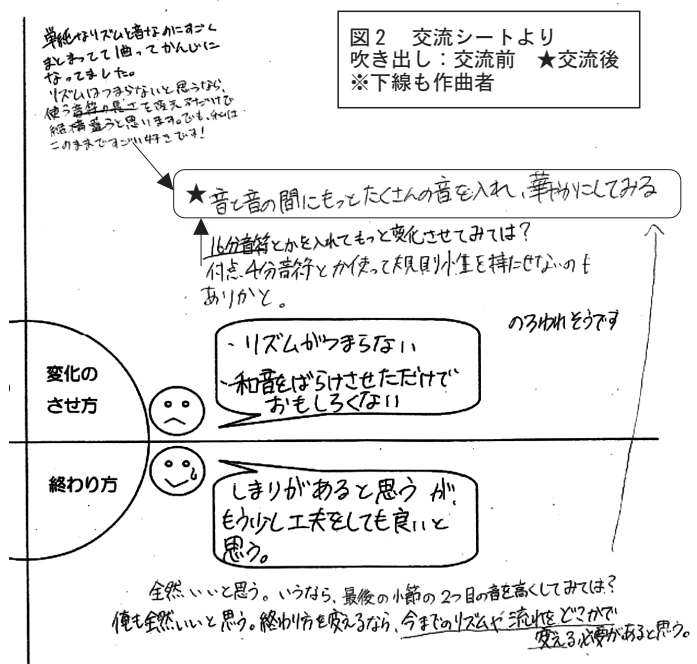 図2　交流シートより
吹き出し：交流前　★交流後
※下線も作曲者
単純なリズムと音なのにすごく
まとまってて1曲ってかんじに
なってました。
リズムはつまらないと思うなら、
使う音符の長さを変えるだけで
結構違うと思います。でも、私は
このままですごい好きです!
★音と音の間にもっとたくさんの音を入れ、華やかにしてみる
16分音符とかを入れてもっと変化させてみては?
付点4分音符とか使って規則性を持たせないのも
ありかと。
のろわれそうです
変化の
させ方
・リズムがつまらない
・和音をばらけさせただけで
おもしろくない
終わり方
しまりがあると思うが、
もう少し工夫をしても良いと
思う。
全然いいと思う。いうなら、最後の小節の2つ目の音を高くしてみては?
俺も全然いいと思う。終わり方を変えるなら、今までのリズムや流れをどこかで
変える必要があると思う。